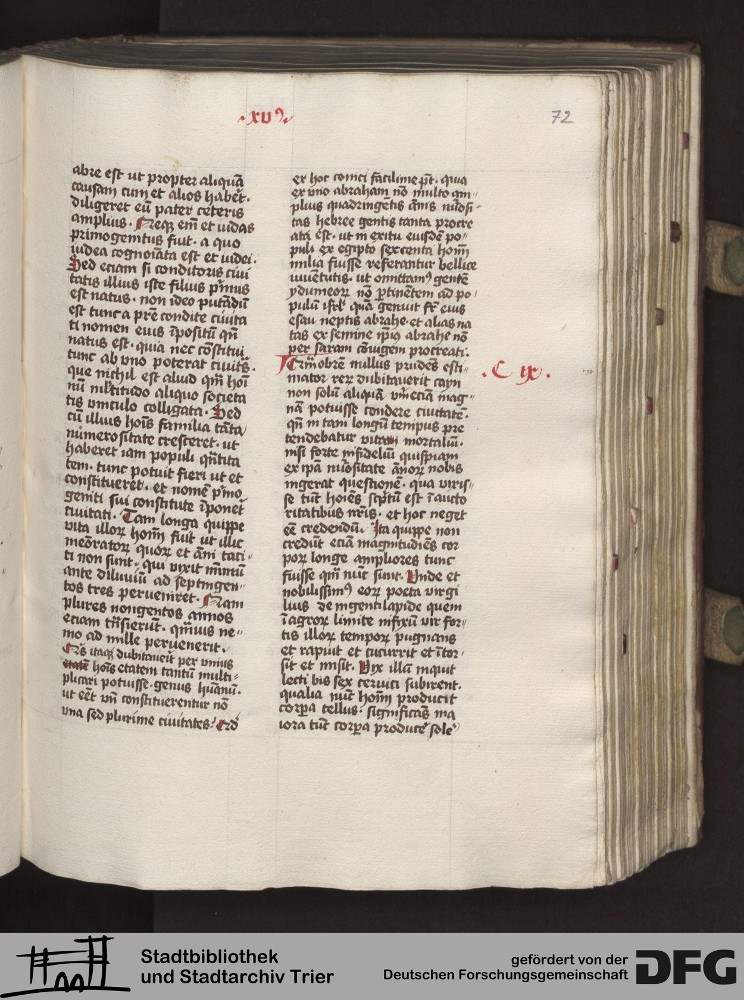 ·xv·
72
abre est ut propter aliquā
causam cum et alios habēt·
diligeret eū pater ceteris
amplius· Neqʒ em̄ et iudas
primogenitus fuit· a quo
iudea cognoīata est et iudei·
Sed eciam si conditoris ciui
tatis illius iste filius p̄mus
est natus· non ideo putādū
est tunc a prē condite ciuita
ti nomen eius īpositū qn̄
natus est· quia nec cōstitui
tunc ab vno poterat ciuitas
que nichil est aliud qm̄ hoī
nū multitudo aliquo societa
tis vinculo colligata· Sed
cū illius hoīs familia tāta
numerositate cresceret· ut
haberet iam populi qn̄tita
tem· tunc potuit fieri ut et
constitueret· et nomē p̄mo
geniti sui constitute īponēt
ciuitati· Tam longa quippe
vita illoꝝ homī fuit ut illic
meōratoꝝ quoꝝ et āni taci
ti non sunt· qui vixit mīmū
ante diluuiū ad septingen
tos tres perueniret· Nam
plures nongentos annos
eciam trāsierūt· qm̄uis ne
mo ad mille peruenerit·
Q̄s itaqʒ dubitauerit per vnius
hoīs etatem tantū multi
plicari potuisse· genus hūanū·
ut eēt vn̄ constituerentur nō
vna sed plurime ciuitates· Q̄d
ex hoc coinci facilime pt̄· quia
ex vno abraham nō multo am
plius quadringētis ānis nūosi
tas hebree gentis tanta procre
ata est· ut in exitu eiusdē po
puli ex egipto sexcenta homī
milia fuisse referantur bellice
iuuētutis· ut omittam gentē
ydumeoꝝ nō ptinētem ad po
pulū isrl· quā genuit fr̄ eius
esau neptis abrahe· et alias na
tas ex semine ip̄ius abrahe nō
per saram coiugem procreati·
Q̄mobrē nullus prudēs esti
mator reꝝ dubitauerit cayn
non solū aliquā vn̄eciā mag
nā potuisse condere ciuitatē·
qn̄ in tam longū tempus pre
tendebatur vitam mortaliū·
nisi forte infideliū quispiam
ex ip̄a nūositate ānoꝝ nobis
ingerat questionē· qua vixis
se tūc hoīes sc̄ptū est ī aucto
ritatibus nr̄is· et hoc neget
eē credendū· Ita quippe non
credūt eciā magnitudīes cor
poꝝ longe ampliores tunc
fuisse qm̄ nūc sunt· Vnde et
nobilissimꝰ eoꝝ poeta virgi
lius de ingenti lapide quem
ī agroꝝ limite infixū vir for
tis illoꝝ tempoꝝ pugnans
et rapuit et cucurrit et ītor
sit et misit· Vix illū inquit
lecti bis sex ceruici subirent·
qualia nūc homī producit
corp̄a tellus· significās ma
iora tūc corp̄a producē sole
·C ix·
Stadtbibliothek
und Stadtarchiv Trier
gefördert von der
Deutschen Forschungsgemeinschaft
DFG